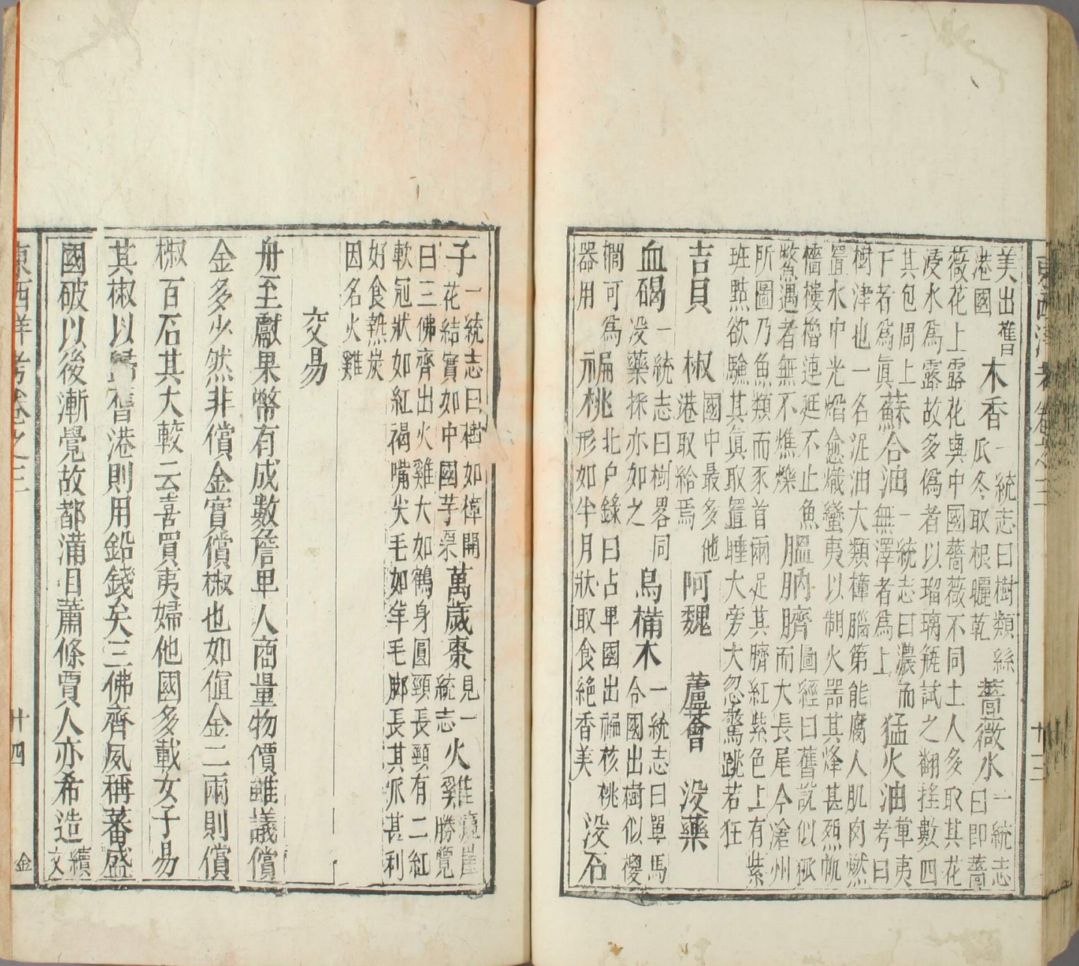 東西洋考 卷之三 廿三
美出舊
港國
木香
一統志曰樹類絲
瓜冬取根曬乾
薔薇水
一統志
曰即薔
薇花上露花與中國薔薇不同土人多取其花
浸水為露故多偽者以琉璃瓶試之翻搖數四
其包周上上
下者為真
蘇合油
一統志曰濃而
無澤者為上
猛火油
華夷
考曰
樹津也一名泥油大類樟腦第能腐人肌肉燃
置水中光焰愈熾蠻夷以制火器其烽甚烈帆
檣樓櫓連延不止魚
鱉遇者無不燋爍
膃肭臍
圖徑曰舊說似狐
而大長尾今滄州
所圖乃魚類而豕首兩足其臍紅紫色上有紫
班點欲驗其真取置睡犬旁犬忽驚跳若狂
吉貝 椒
國中最多他
港取給焉
阿魏 蘆薈 没藥
血碣
一統志曰樹畧同
没藥採亦如之
烏樠木
一統志曰單馬
令國出樹似㯶
櫚可為
器用
褊桃
北户錄曰占卑國出褊核桃
形如半月狀取食絕香美
没石
子
一統志曰樹如樟開
花結實如中國芋栗
萬歲棗
見一
統志
火雞
瀛崖
勝覽
曰三佛齊出火雞大如鶴身圓頸長頸有二紅
軟冠狀如紅褐嘴尖毛如羊毛脚長其爪甚利
好食熱炭
因名火雞
交易
舟至獻果幣有成數詹卑人商量物價雖議償
金多少然非償金實償椒也如值金二兩則償
椒百石其大較云喜買夷婦他國多載女子易
其椒以歸舊港則用鉛錢矣三佛齊夙稱蕃盛
國破以後漸覺故都滿目蕭條賈人亦希造
續
文
東西洋考卷之三 廿四 金